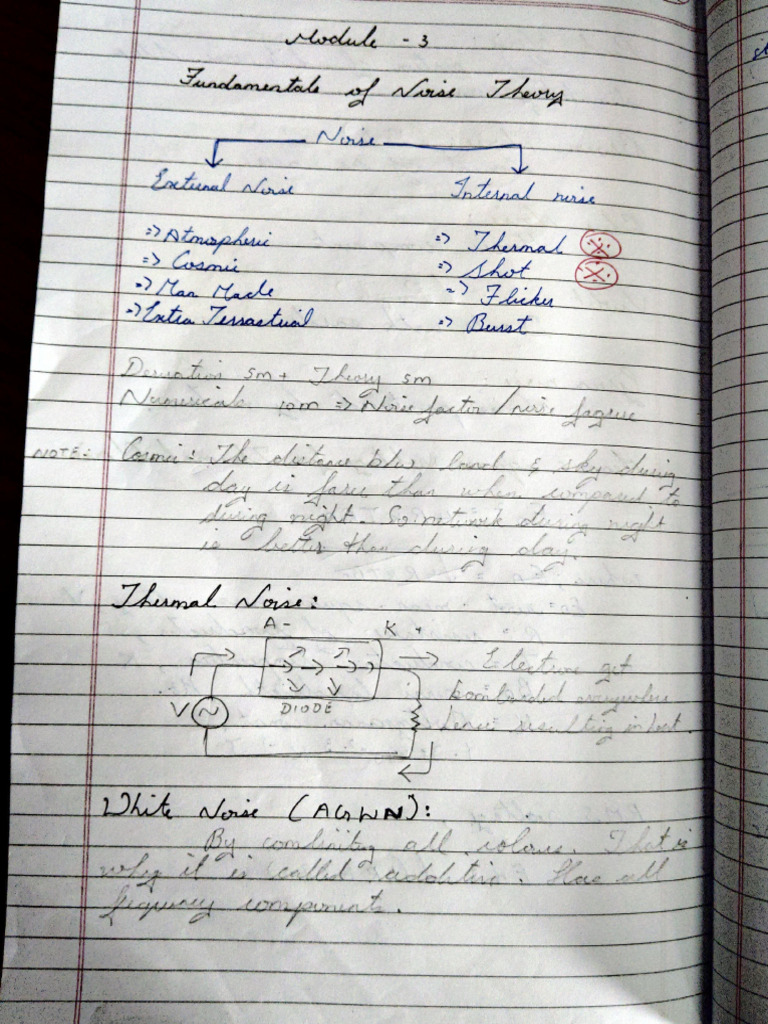 Module - 3
Fundamentals of Noise Theory
Noise
External Noise Internal noise
=> Atmospheric => Thermal
=> Cosmic => Shot
=> Man Made => Flicker
=> Extra Terrastrial => Burst
Derivation 5m + Theory 5m
Numericals 10m => Noise factor / noise fagure
NOTE: Cosmic: The distance b/w land & sky during
day is farer than when compared to
during night. So network during night
is better than during day.
Thermal Noise:
A - K +
Electrons get
bombarded everywhere
hence resulting in heat.
V DIODE
White Noise (AGWN):
By combining all colours. That is
why it is called additive. Has all
frequency components.